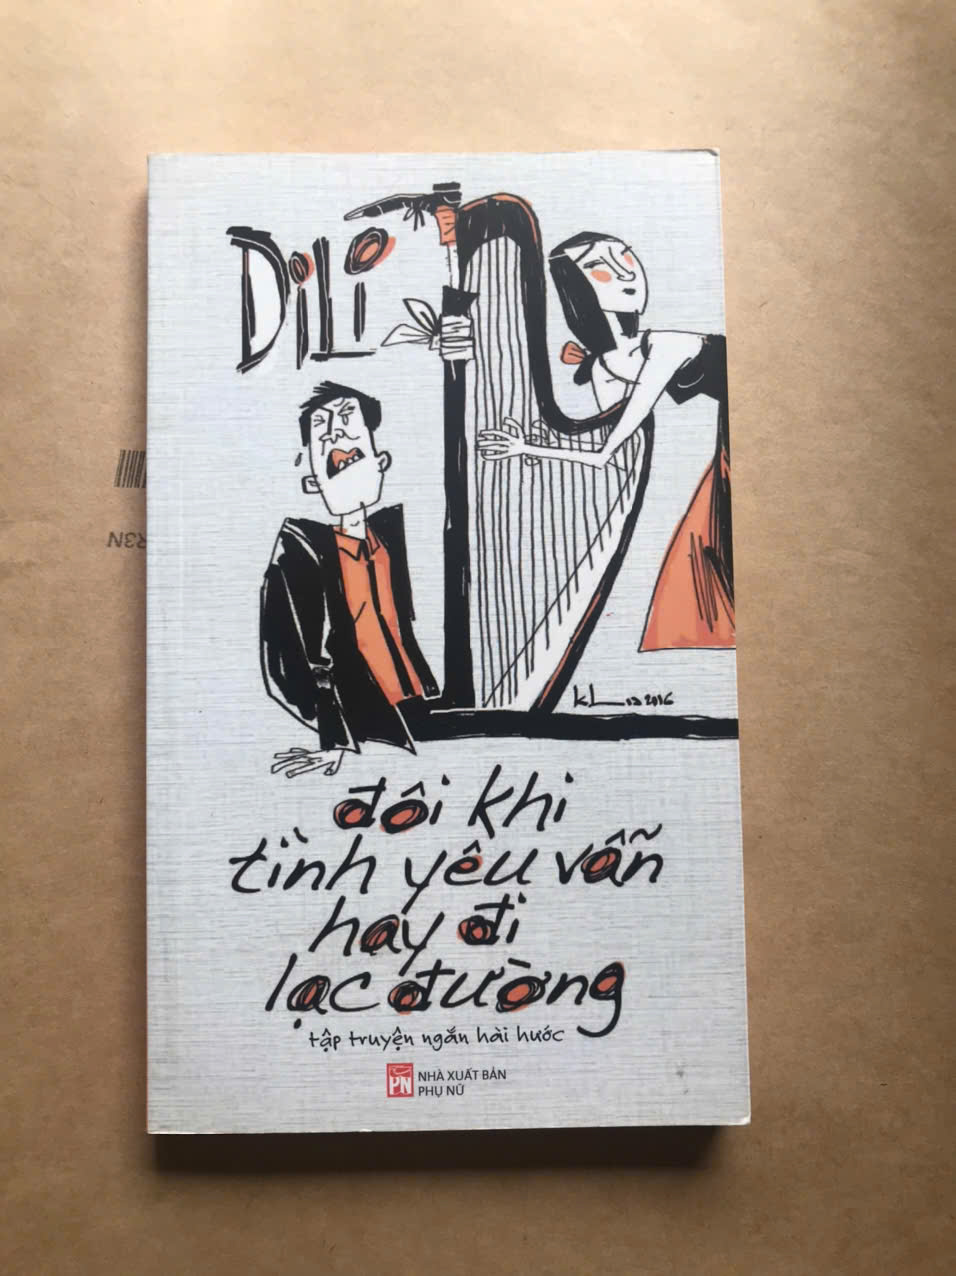 DiLi
KL 12 2016
đôi khi
tình yêu vẫn
hay đi
lạc đường
tập truyện ngắn hài hước
PN
NHÀ XUẤT BẢN
PHỤ NỮ
R3N